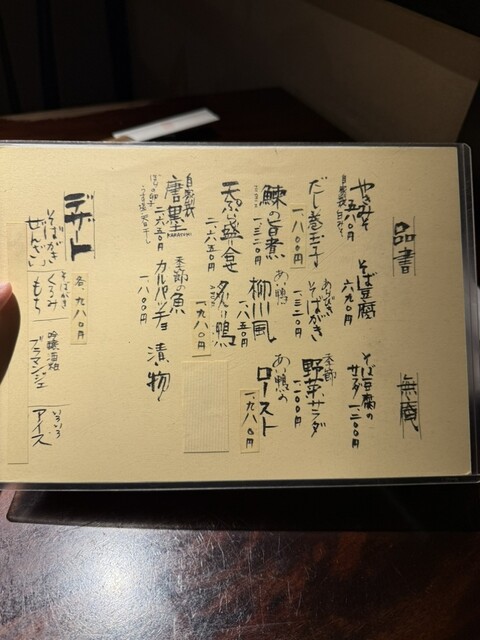 品書
無庵
やきみそ
五〇円
そば豆腐
六九〇円
そば豆腐の
サラダ 一二〇〇円
だし巻玉子
一、一〇〇円
あらびき
そばがき
一、三二〇円
季節
野菜サラダ
一、一〇〇円
鰊の旨煮
一、三二〇円
あい鴨
柳川風
一、八五〇円
あい鴨の
ロースト
一、九八〇円
天ぷら盛合せ
二、六五〇円
炙り鴨
一、九八〇円
自家製
唐墨
KARASUMI
二、六五〇円
ぼらの卵
うす塩天日干し
季節の魚
カルパッチョ
一、八〇〇円
漬物
デザート
各、九八〇円
そばがき
ぜんざい
そばがき
くるみもち
吟醸酒粕
ブラマンジェ
いろいろ
アイス